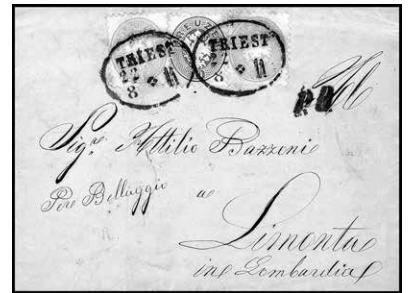 TRIEST
22
8
11
TRIEST
22
8
11
P.D.
Sigr. Attilio Bazzoni
Per Bellaggio
a
Limonta
in Lombardia